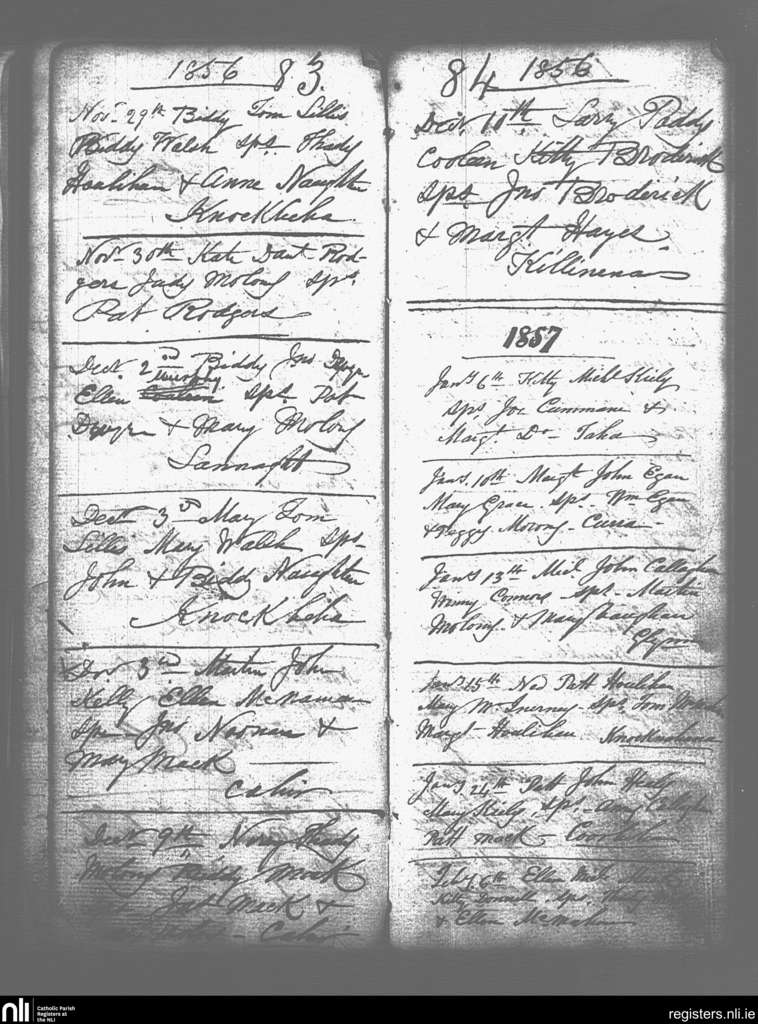 1856 83.
Novr 29th Biddy Tom Lillis
Biddy Walsh Sps. Thady
Houlihan & Anne Naughten
Knockbeha
Novr 30th Kate Danl Rod-
gers Judy Molony Sps.
Pat Rodgers
Decr. 2nd Biddy Jno Dwyer
Murphy
Ellen Sps. Pat
Dwyer & Mary Molony
Lannaght
Decr 3rd Mary Tom
Lillis Mary Walsh Sps-
John & Biddy Naughten
Knockbeha
3rd Martin John
Kelly Ellen McNamara
Sps Jno Noonan &
Mary Mack
Caher
Decr 9th Thady
Molony Biddy Mack
Mack &
Caher
84 1856
Decr. 11th Larry Paddy
Kitty Broderick
Sps. Jno Broderick
& Margt Hayes.
Killinena
1857
Jany 6th Kitty Michl Kiely
Sps Joe Cummane &
Margt. Do-
Jany. 10th Margt John Egan
Mary Grace. Sps. Wm Egan
& Peggy Molony-
Jany 13th Mich. John Callaghan
Winny Connors Sps. Martin
Molony. & Mary
15th Ned Patt Houlihan
Mary McInerney- Sps. Tom
Margt- Houlihan
Jany 24th Patt John
Mary Kiely, Sps.-
Patt Mack-
Feby 6th Ellen
Kitty Donnell Sps.
& Ellen McMahon
nli
Catholic Parish
Registers at
the NLI
registers.nli.ie